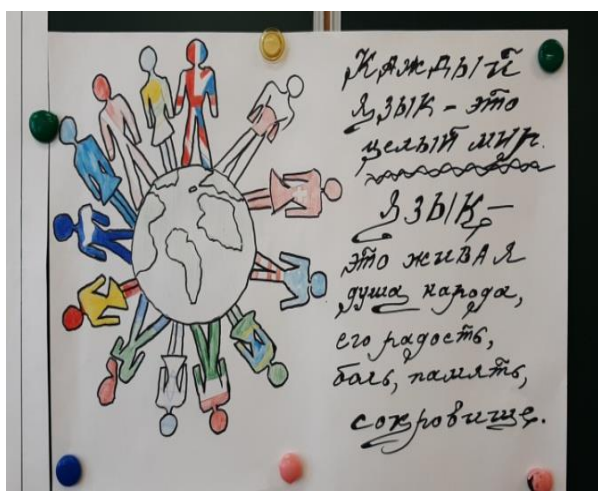 Каждый
язык - это
целый мир.
Язык -
это живая
душа народа,
его радость,
боль, память,
сокровище.